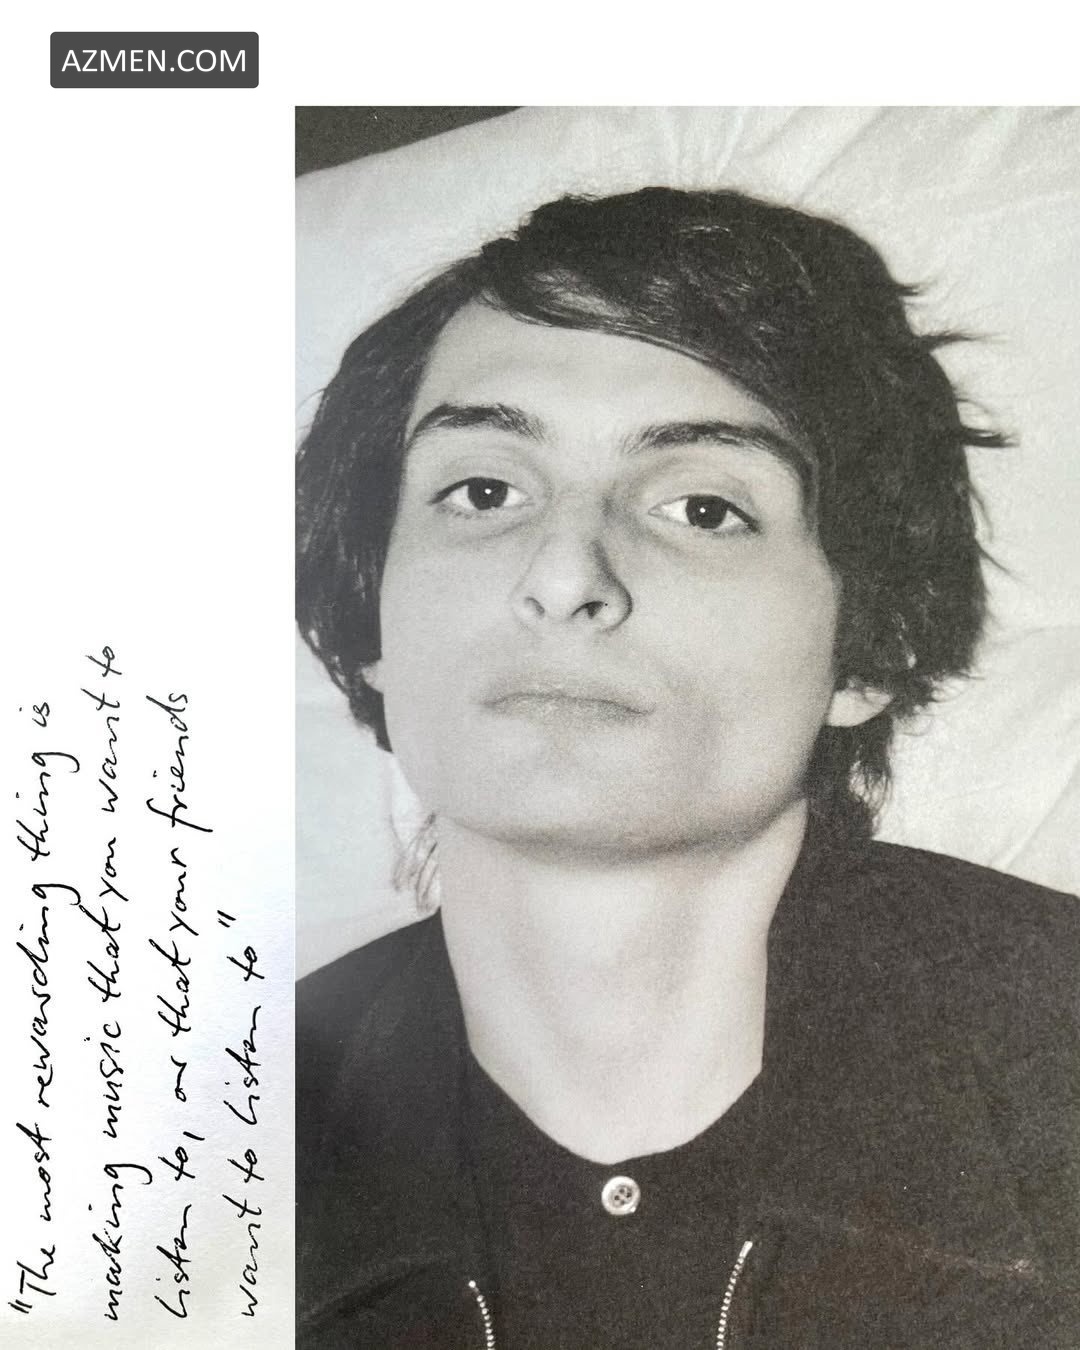 AZMEN.COM
"The most rewarding thing is
making music that you want to
listen to, or that your friends
want to listen to"